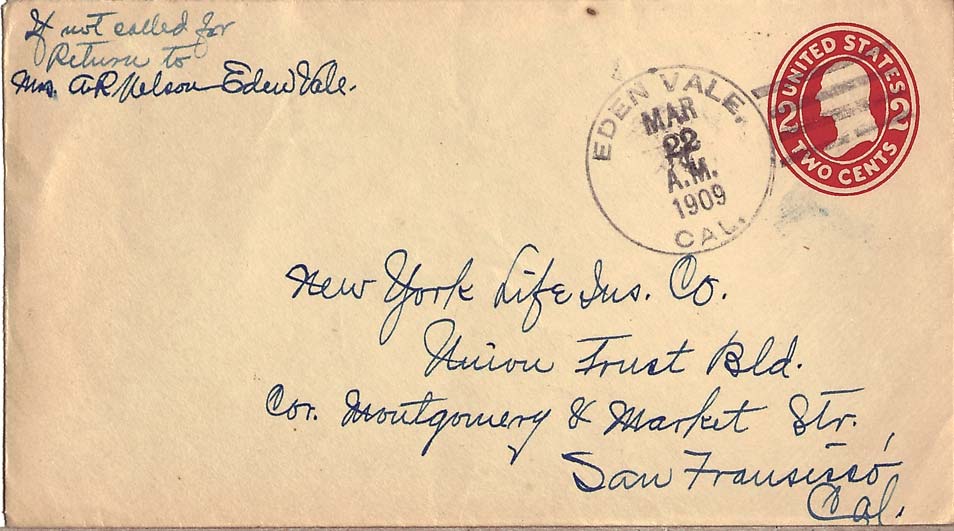 If not called for
Return to
Mrs. A R Nelson Eden Vale.
EDEN VALE.
MAR
22
A.M.
1909
CAL.
UNITED STATES
2 2
TWO CENTS
New York Life Ins. Co.
Union Trust Bld.
Cor. Montgomery & Market Str.,
San Fransisso
Cal.